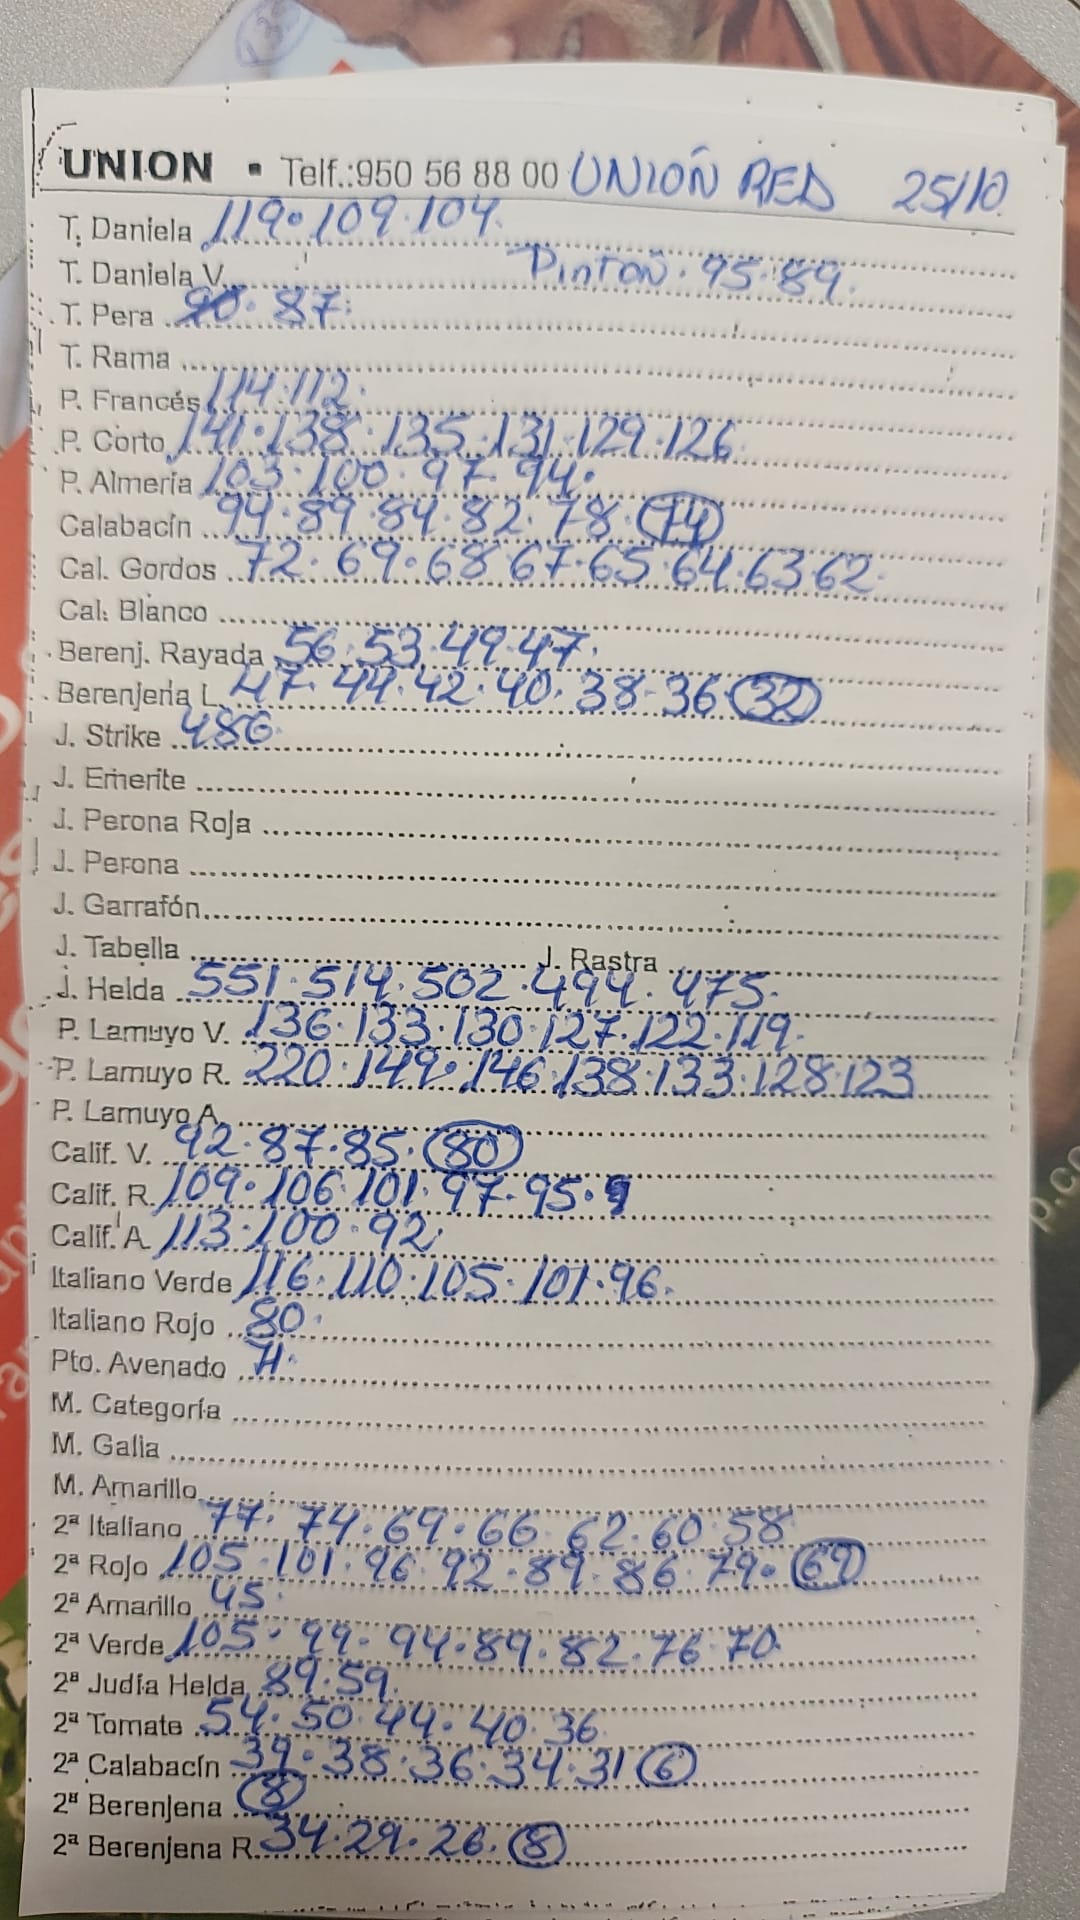 UNION • Telf.:950 56 88 00 UNIÓN RED 25/10
T. Daniela 119. 109. 104.
T. Daniela V. Pintón. 95. 89.
T. Pera 87.
T. Rama
P. Francés 114. 112.
P. Corto 141. 138. 135. 131. 129. 126
P. Almería 103. 100. 97. 94.
Calabacín 94. 89. 84. 82. 78. 74
Cal. Gordos 72. 69. 68 67. 65. 64. 63 62.
Cal. Blanco
Berenj. Rayada 56. 53. 49. 47.
Berenjena L. 47. 44. 42. 40. 38. 36. 32
J. Strike 486.
J. Emerite
J. Perona Roja
J. Perona
J. Garrafón
J. Tabella J. Rastra
J. Helda 551. 514. 502. 494. 475.
P. Lamuyo V. 136. 133. 130. 127. 122. 119.
P. Lamuyo R. 220. 149. 146. 138. 133. 128. 123
P. Lamuyo A.
Calif. V. 92. 87. 85. 80
Calif. R. 109. 106. 101. 97. 95.
Calif. A. 113. 100. 92.
Italiano Verde 116. 110. 105. 101. 96.
Italiano Rojo 80.
Pto. Avenado
M. Categoría
M. Galia
M. Amarillo
2ª Italiano 77. 74. 69. 66. 62. 60. 58
2ª Rojo 105. 101. 96. 92. 89. 86. 79. 69
2ª Amarillo 45.
2ª Verde 105. 99. 94. 89. 82. 76. 70
2ª Judía Helda 89. 59.
2ª Tomate 54. 50. 44. 40. 36
2ª Calabacín 39. 38. 36. 34. 31 6
2ª Berenjena 8
2ª Berenjena R. 34. 29. 26. 8